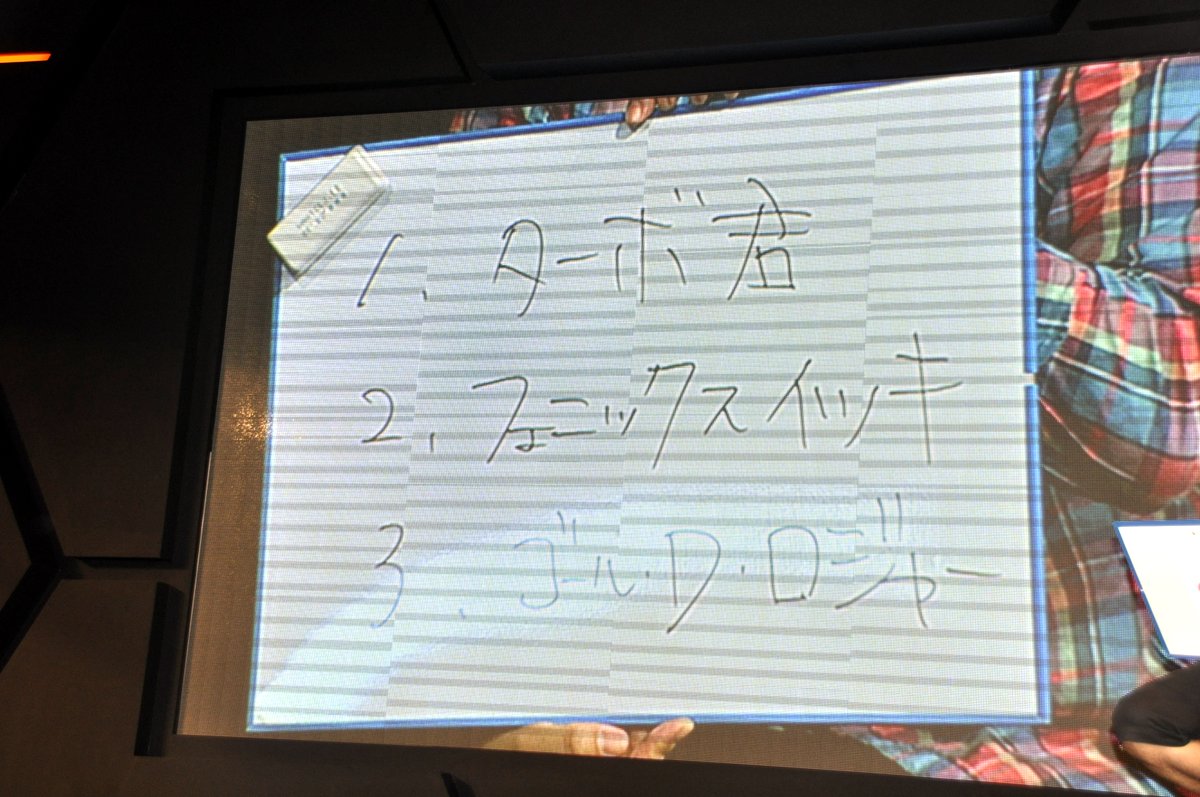 1. ターボ君
2. フェニックスイッキ
3. ゴール・D・ロジャー